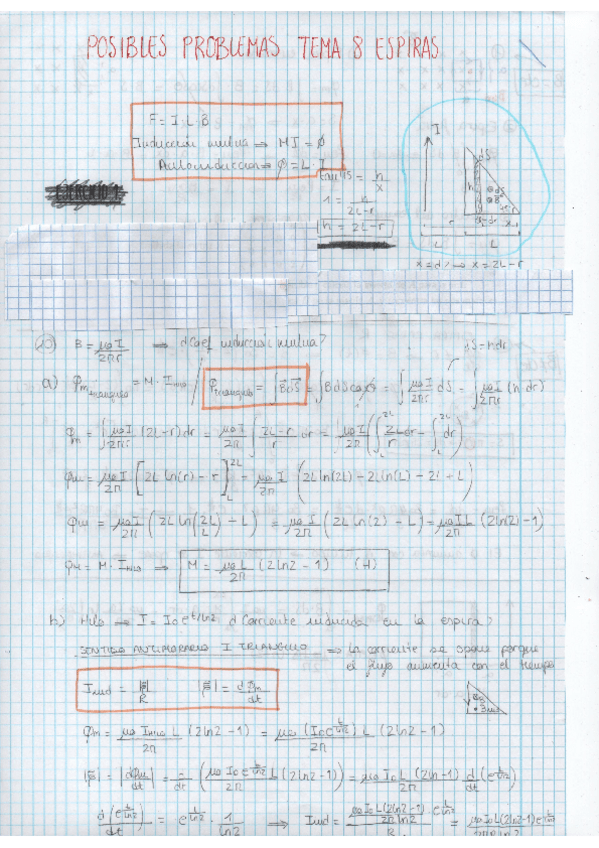 POSIBLES PROBLEMAS TEMA 8 ESPIRAS
F = I · L · B
Inducción mutua ⇒ MI = Φ
Autoinducción ⇒ Φ = L · I
EJERCICIO 1
tan 45 = h/x
1 = h/(2L-r)
h = 2L-r
I
dS
h
dr
x
r
L
L
x = 2L-r
B = μ0 I/2πr ⇒ ¿Coef inducción mutua?
dS = h dr
a) φm triángulo = M · I hilo / φtriángulo = ∫B dS = ∫B dS cos 0 = ∫ μ0 I/2πr dS = ∫ μ0 I/2πr (h dr)
φm = ∫ μ0 I/2πr (2L-r) dr = μ0 I/2π ∫ (2L-r)/r dr = μ0 I/2π (∫_L^2L 2L/r dr - ∫_L^2L dr)
φm = μ0 I/2π [2L ln(r) - r]_L^2L = μ0 I/2π (2L ln(2L) - 2L ln(L) - 2L + L)
φm = μ0 I/2π (2L ln(2L/L) - L) = μ0 I/2π (2L ln(2) - L) = μ0 I L/2π (2ln2 - 1)
φm = M · I hilo ⇒ M = μ0 L/2π (2ln2 - 1) (H)
b) Hilo ⇒ I = I0 e^t/ln2, ¿Corriente inducida en la espira?
SENTIDO ANTIHORARIO I TRIANGULO ⇒ la corriente se opone porque
el flujo aumenta con el tiempo
Iind = |ε|/R |ε| = dφm/dt
φm = μ0 I hilo L/2π (2ln2 - 1) = μ0 (I0 e^t/ln2) L/2π (2ln2 - 1)
|ε| = |dφm/dt| = d/dt (μ0 I0 e^t/ln2 L/2π (2ln2 - 1)) = μ0 I0 L/2π (2ln2 - 1) d/dt (e^t/ln2)
d(e^t/ln2)/dt = e^t/ln2 · 1/ln2 ⇒ Iind = μ0 I0 L(2ln2 - 1)/2π ln2 · e^t/ln2 / R = μ0 I0 L(2ln2 - 1) e^t/ln2